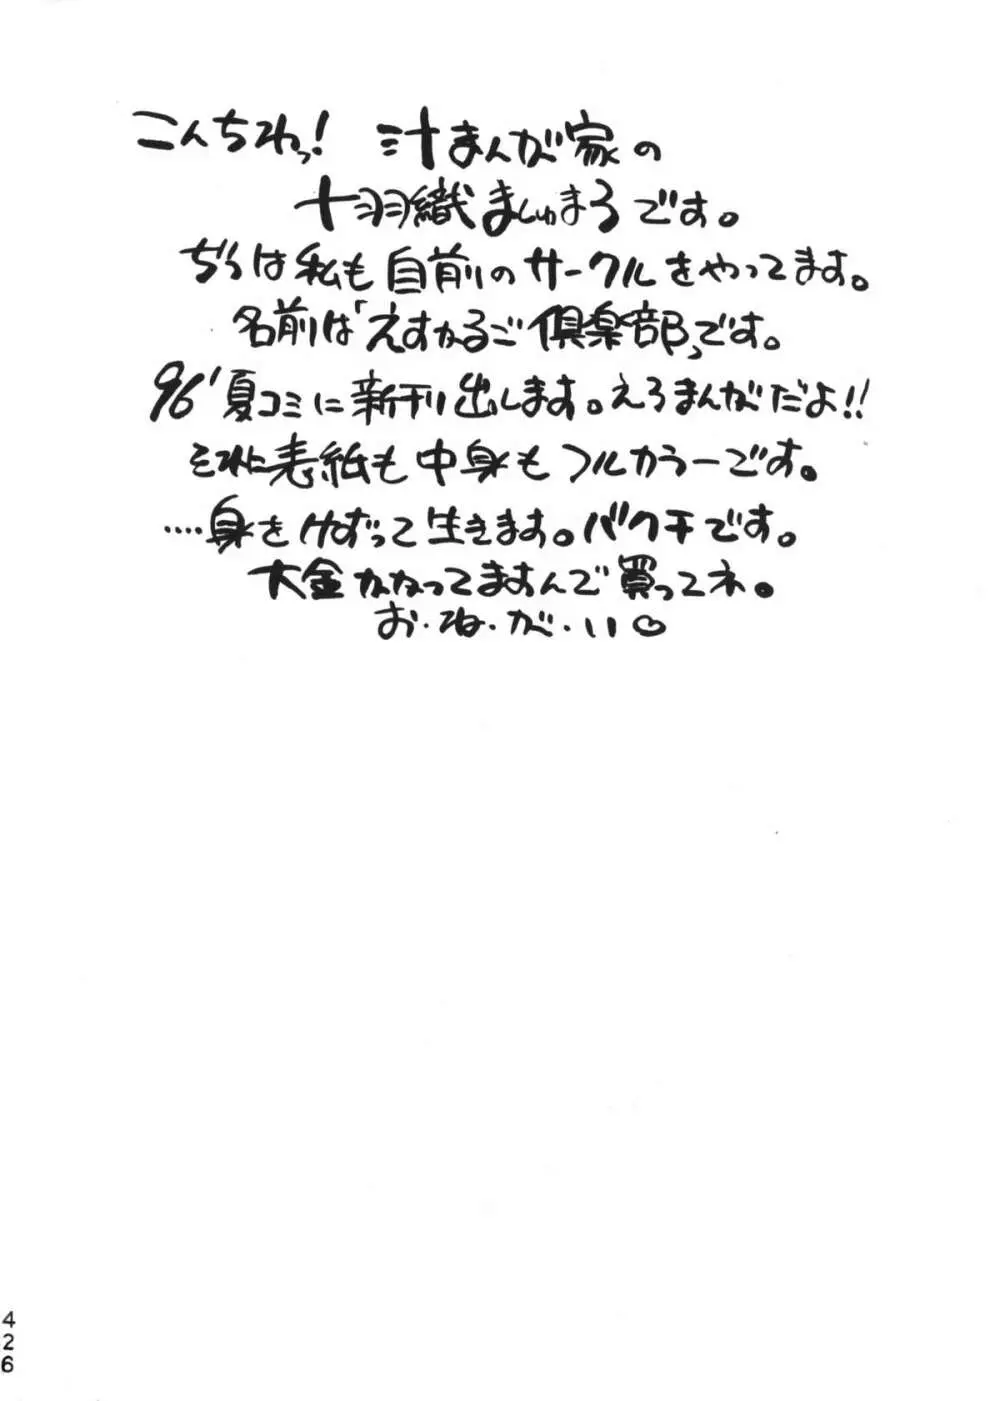 こんちわっ! 汁まんが家の
十羽織ましゅまろです。
じつは私も自前のサークルをやってます。
名前は「えすかるご倶楽部」です。
96'夏コミに新刊出します。えろまんがだよ!!
それに表紙も中身もフルカラーです。
....身をけずって生きます。バクチです。
大金かかってますんで買ってネ。
お・ね・が・い♡
426